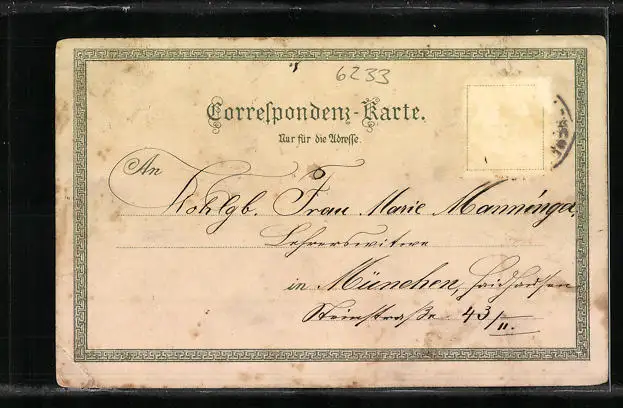 6233
Correspondenz-Karte.
Nur für die Adresse.
An
Wohlgb. Frau Marie Manninger,
Lehrerswitwe
in München, Haidhausen
Steinstraße 43/II.